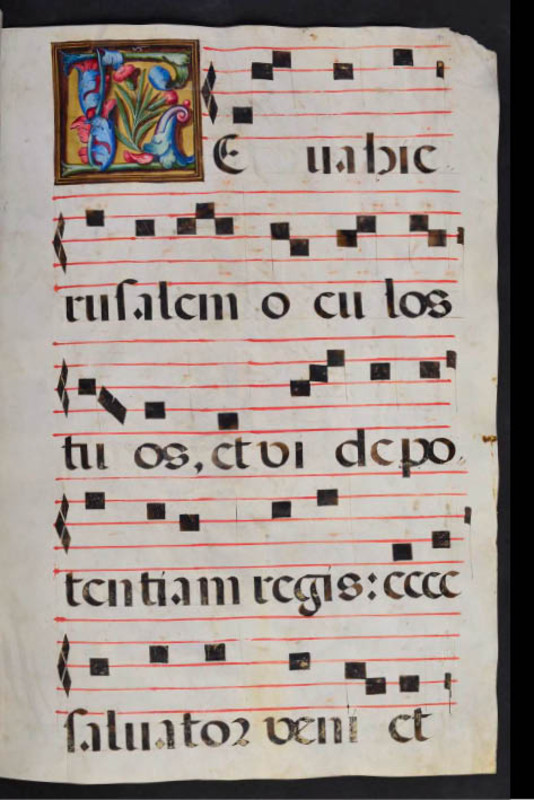 LE uahie
rusalem o cu los
tu os, et vi de po
tentiam regis: ecce
saluator veni et